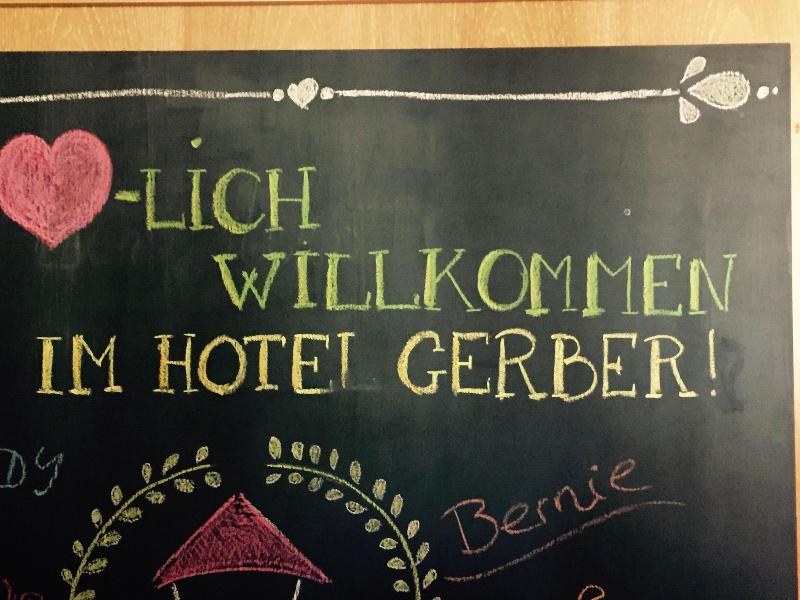 -LICH
WILLKOMMEN
IM HOTEL GERBER!
DY
Bernie